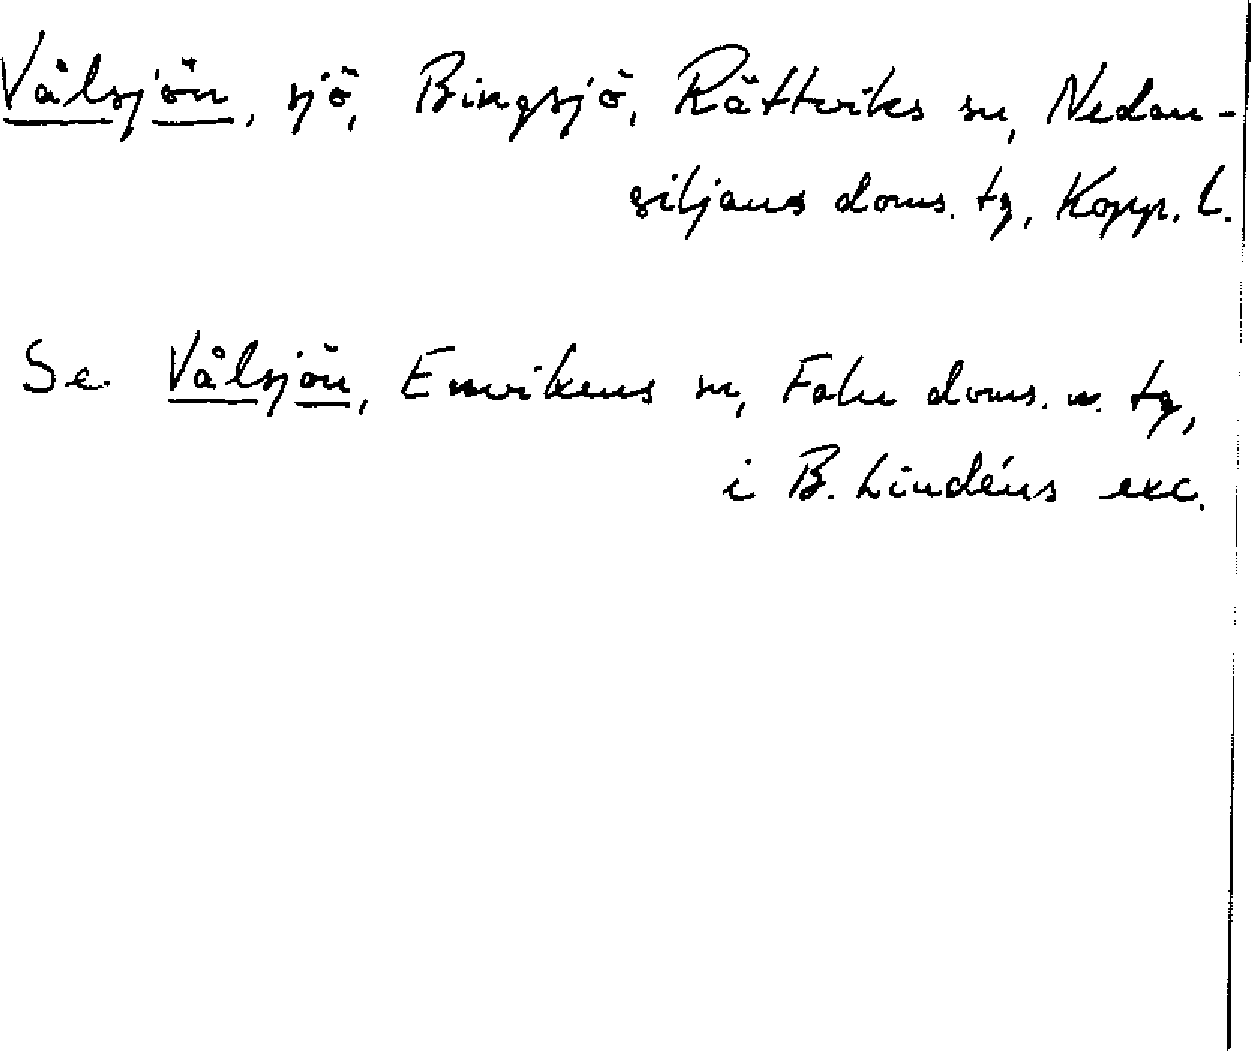 Vålsjön, sjö, Bingsjö, Rättviks sn, Nedan-
siljans doms. tg, Kopp. l.
Se Vålsjön, Envikens sn, Falu doms. n. tg,
i B. Lindéns exc.